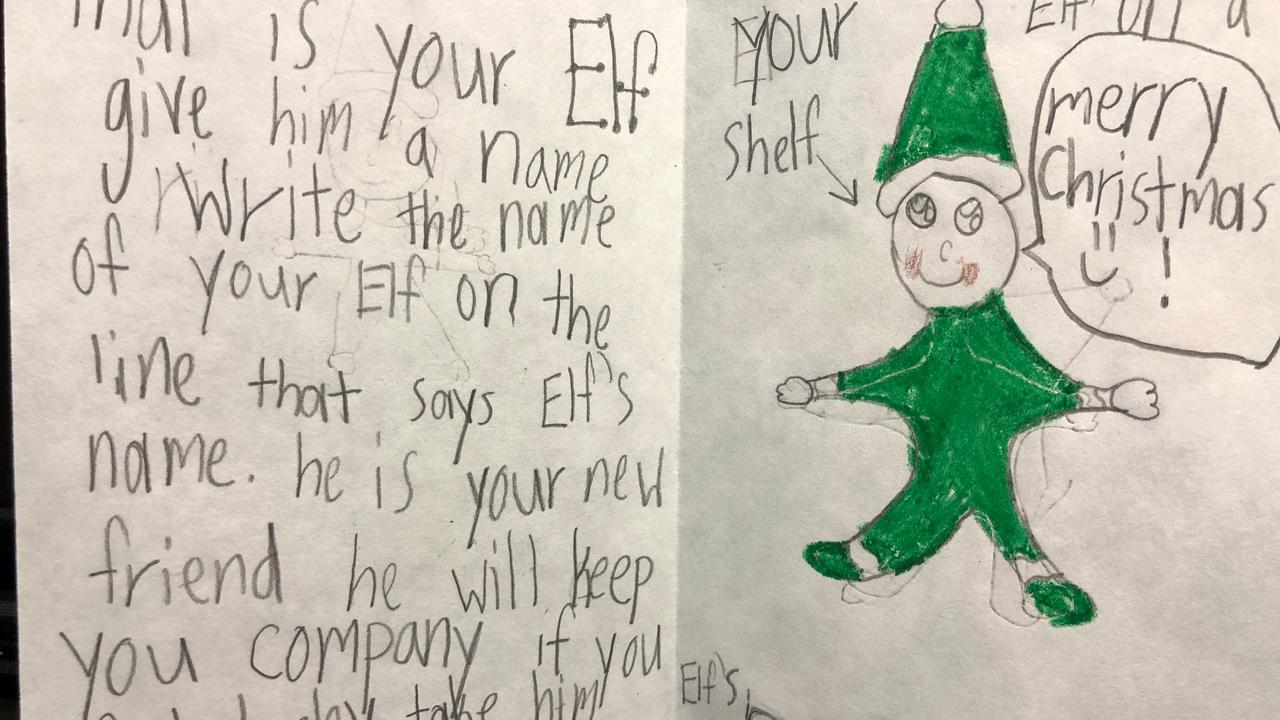 that is your Elf
give him a name
Write the name
of your Elf on the
line that says Elf's
name. he is your new
friend he will keep
you company if you
take him
your
Elf on a
shelf
merry
Christmas
!
Elf's